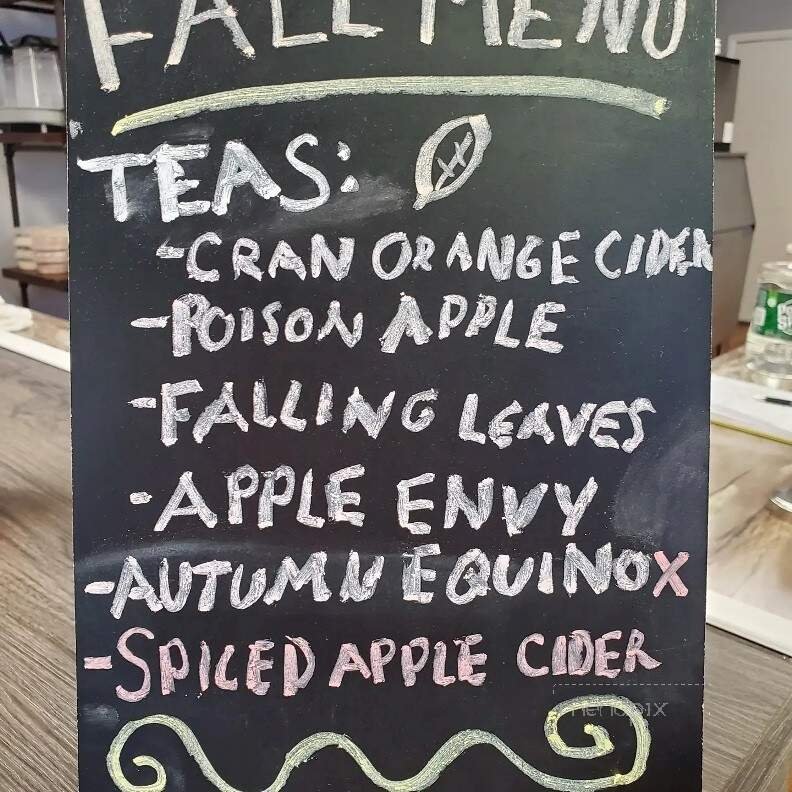 FALL MENU
TEAS:
-CRAN ORANGE CIDER
-POISON APPLE
-FALLING LEAVES
-APPLE ENVY
-AUTUMN EQUINOX
-SPICED APPLE CIDER